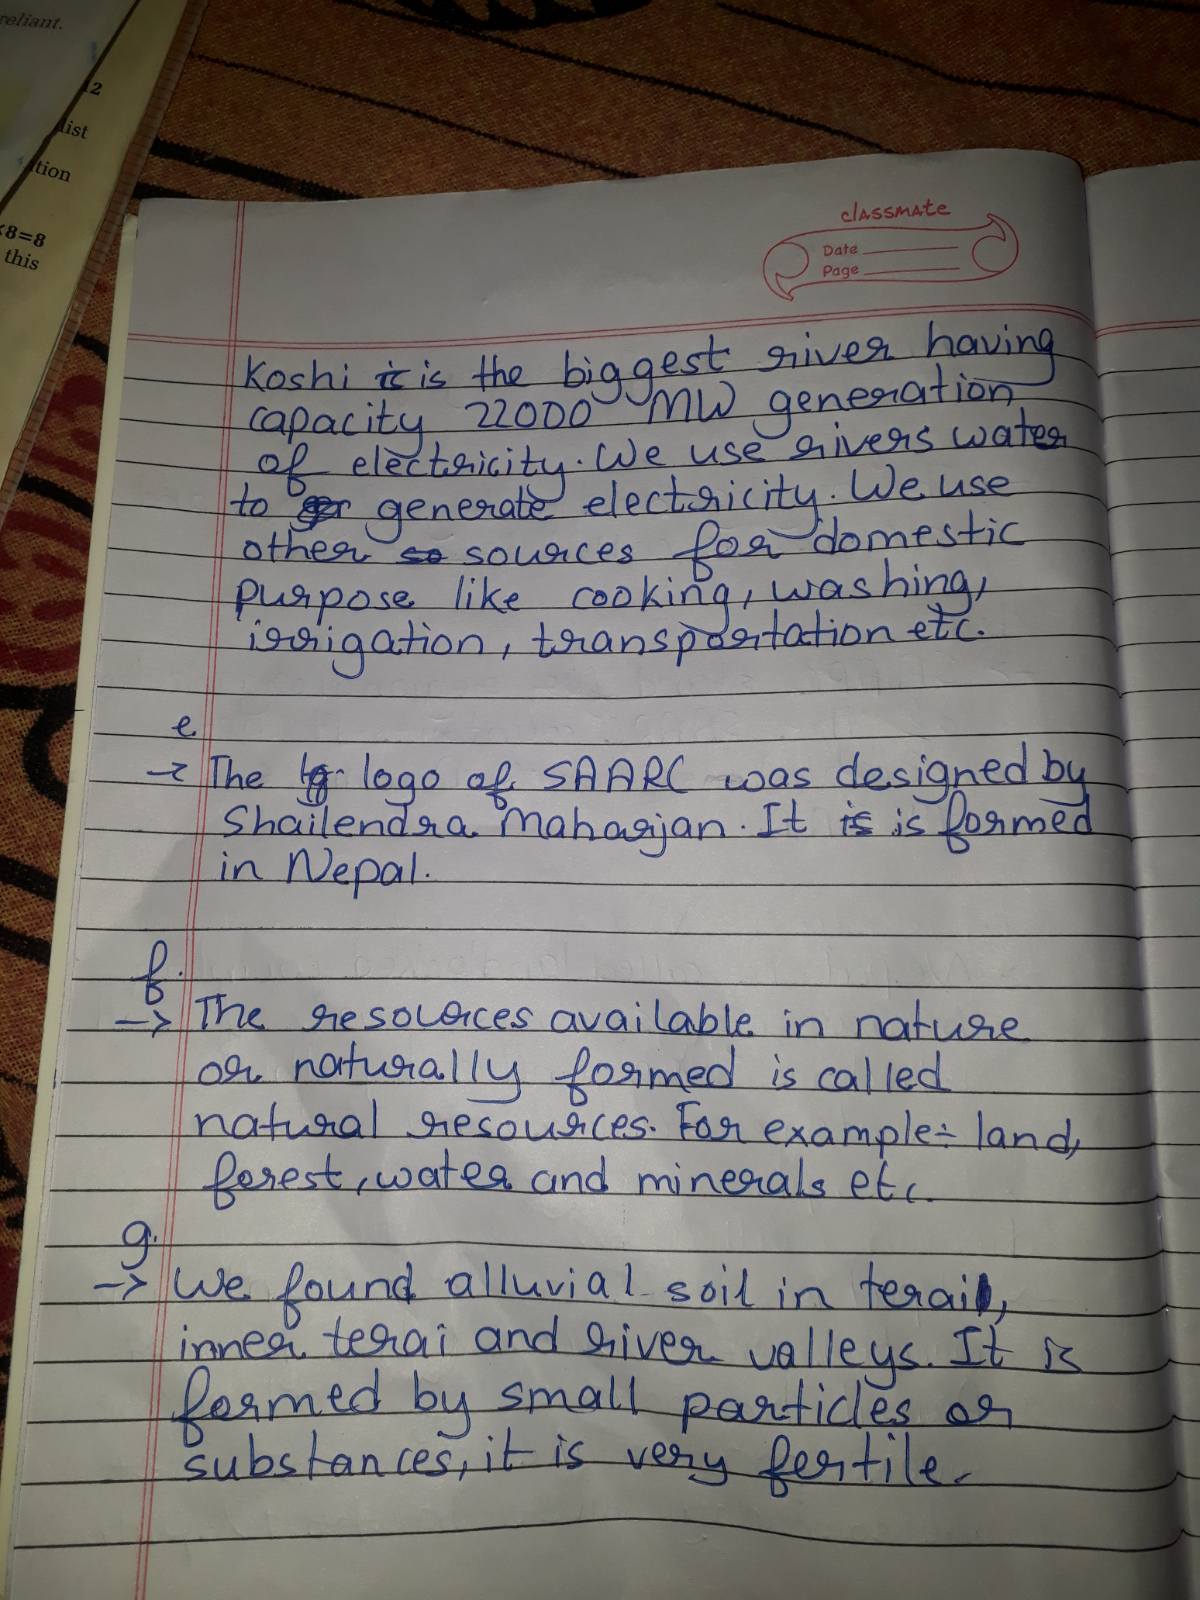 reliant.
12
list
tion
×8=8
this
classmate
Date
Page
Koshi is the biggest river having
capacity 22000 MW generation
of electricity. We use rivers water
to generate electricity. We use
other sources for domestic
purpose like cooking, washing,
irrigation, transportation etc.
e.
→ The logo of SAARC was designed by
Shailendra Maharjan. It is formed
in Nepal.
f.
→ The resources available in nature
or naturally formed is called
natural resources. For example:- land,
forest, water and minerals etc.
g.
→ We found alluvial soil in terai,
inner terai and river valleys. It is
formed by small particles or
substances, it is very fertile.